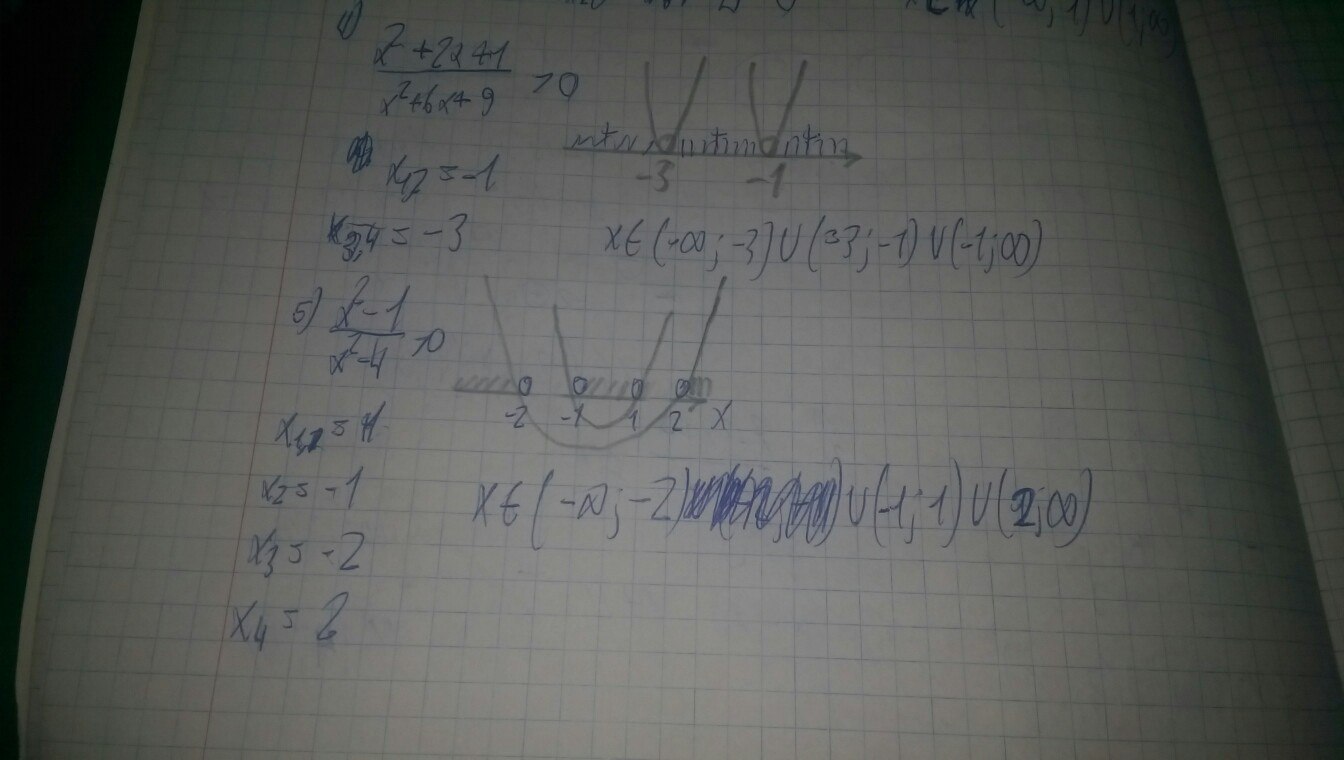 x²+2x+1
x²+6x+9 >0
-3 -1
x₁,₂ = -1
x₃,₄ = -3
x∈(-∞; -3)∪(-3; -1)∪(-1; ∞)
5) x²-1
x²-4 >0
-2 -1 1 2 x
x₁ = 1
x₂ = -1
x∈(-∞; -2) ∪(-1; 1)∪(2; ∞)
x₃ = -2
x₄ = 2